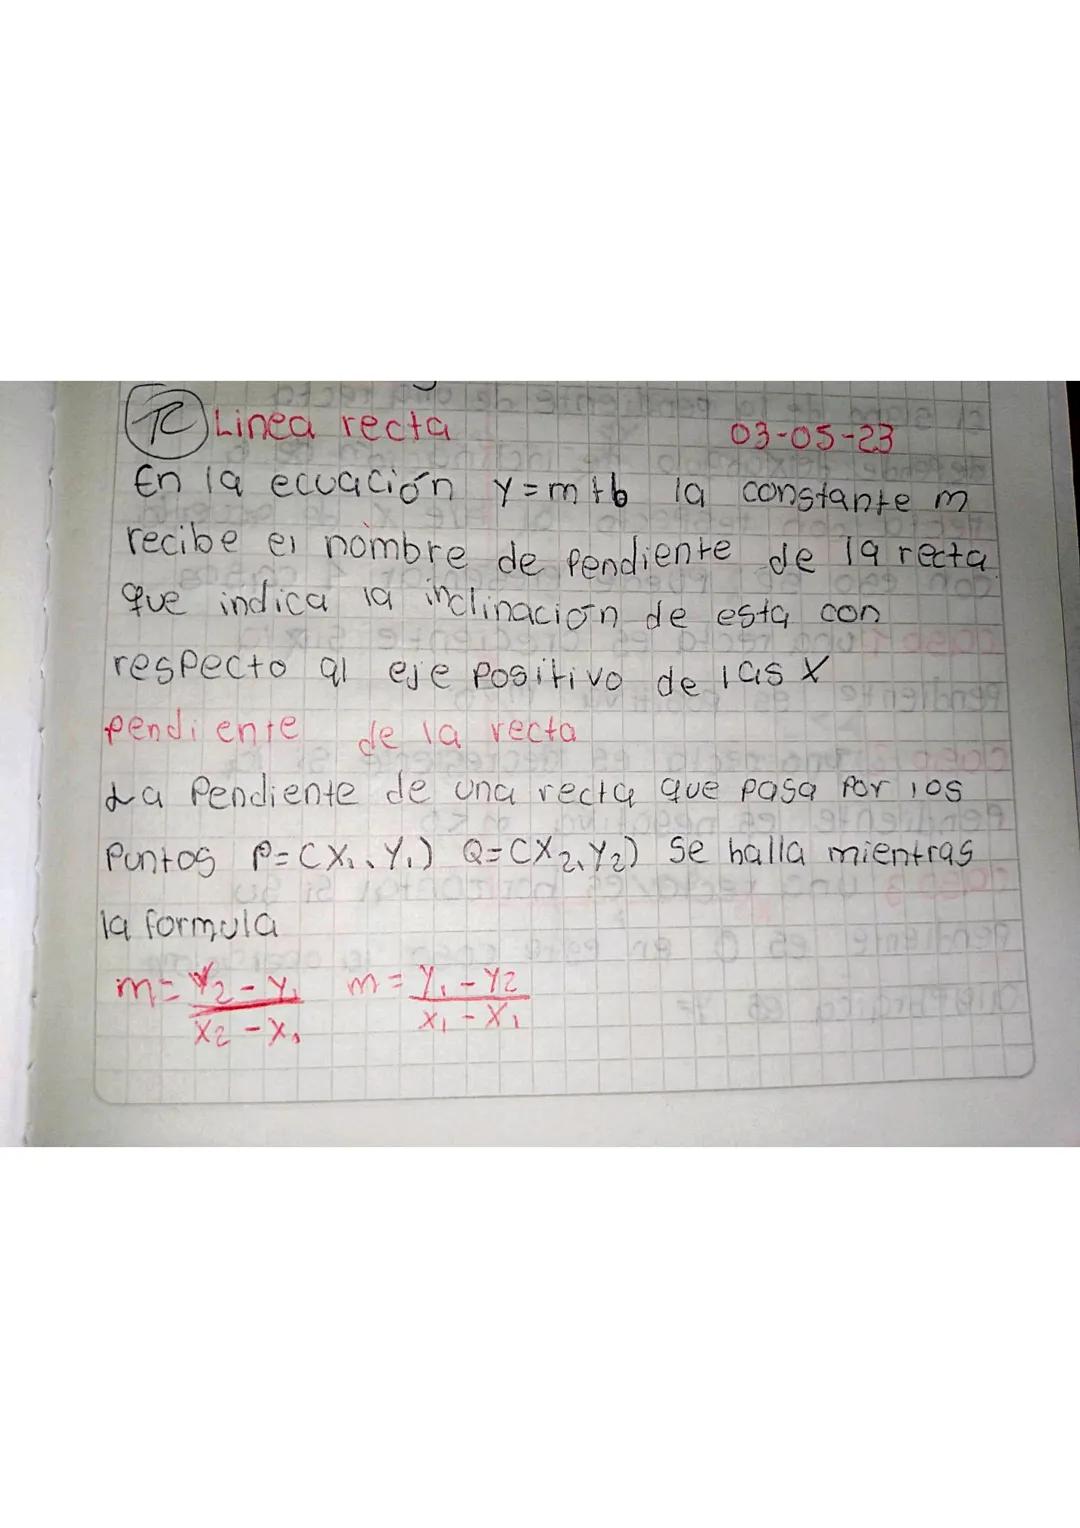 TC Linea recta 03-05-23
En la ecuación y=m+b la constante m
recibe el nombre de pendiente de la recta
que indica la inclinación de esta con
respecto al eje positivo de las X
pendiente de la recta
La Pendiente de una recta que pasa por los
puntos P=(X₁, Y₁) Q=(X₂, Y₂) Se halla mientras
la formula
m= Y₂ - Y₁ / X₂ - X₁ m = Y₁ - Y₂ / X₁ - X₁